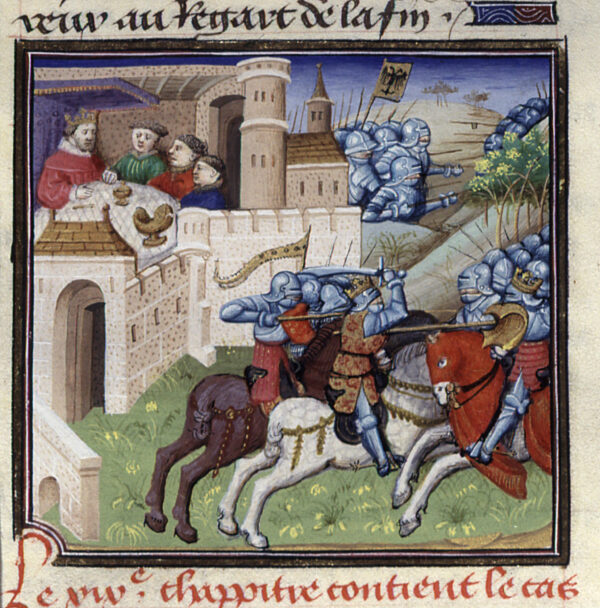 veuw au Regart de la fin
Le xive chappitre contient le cas